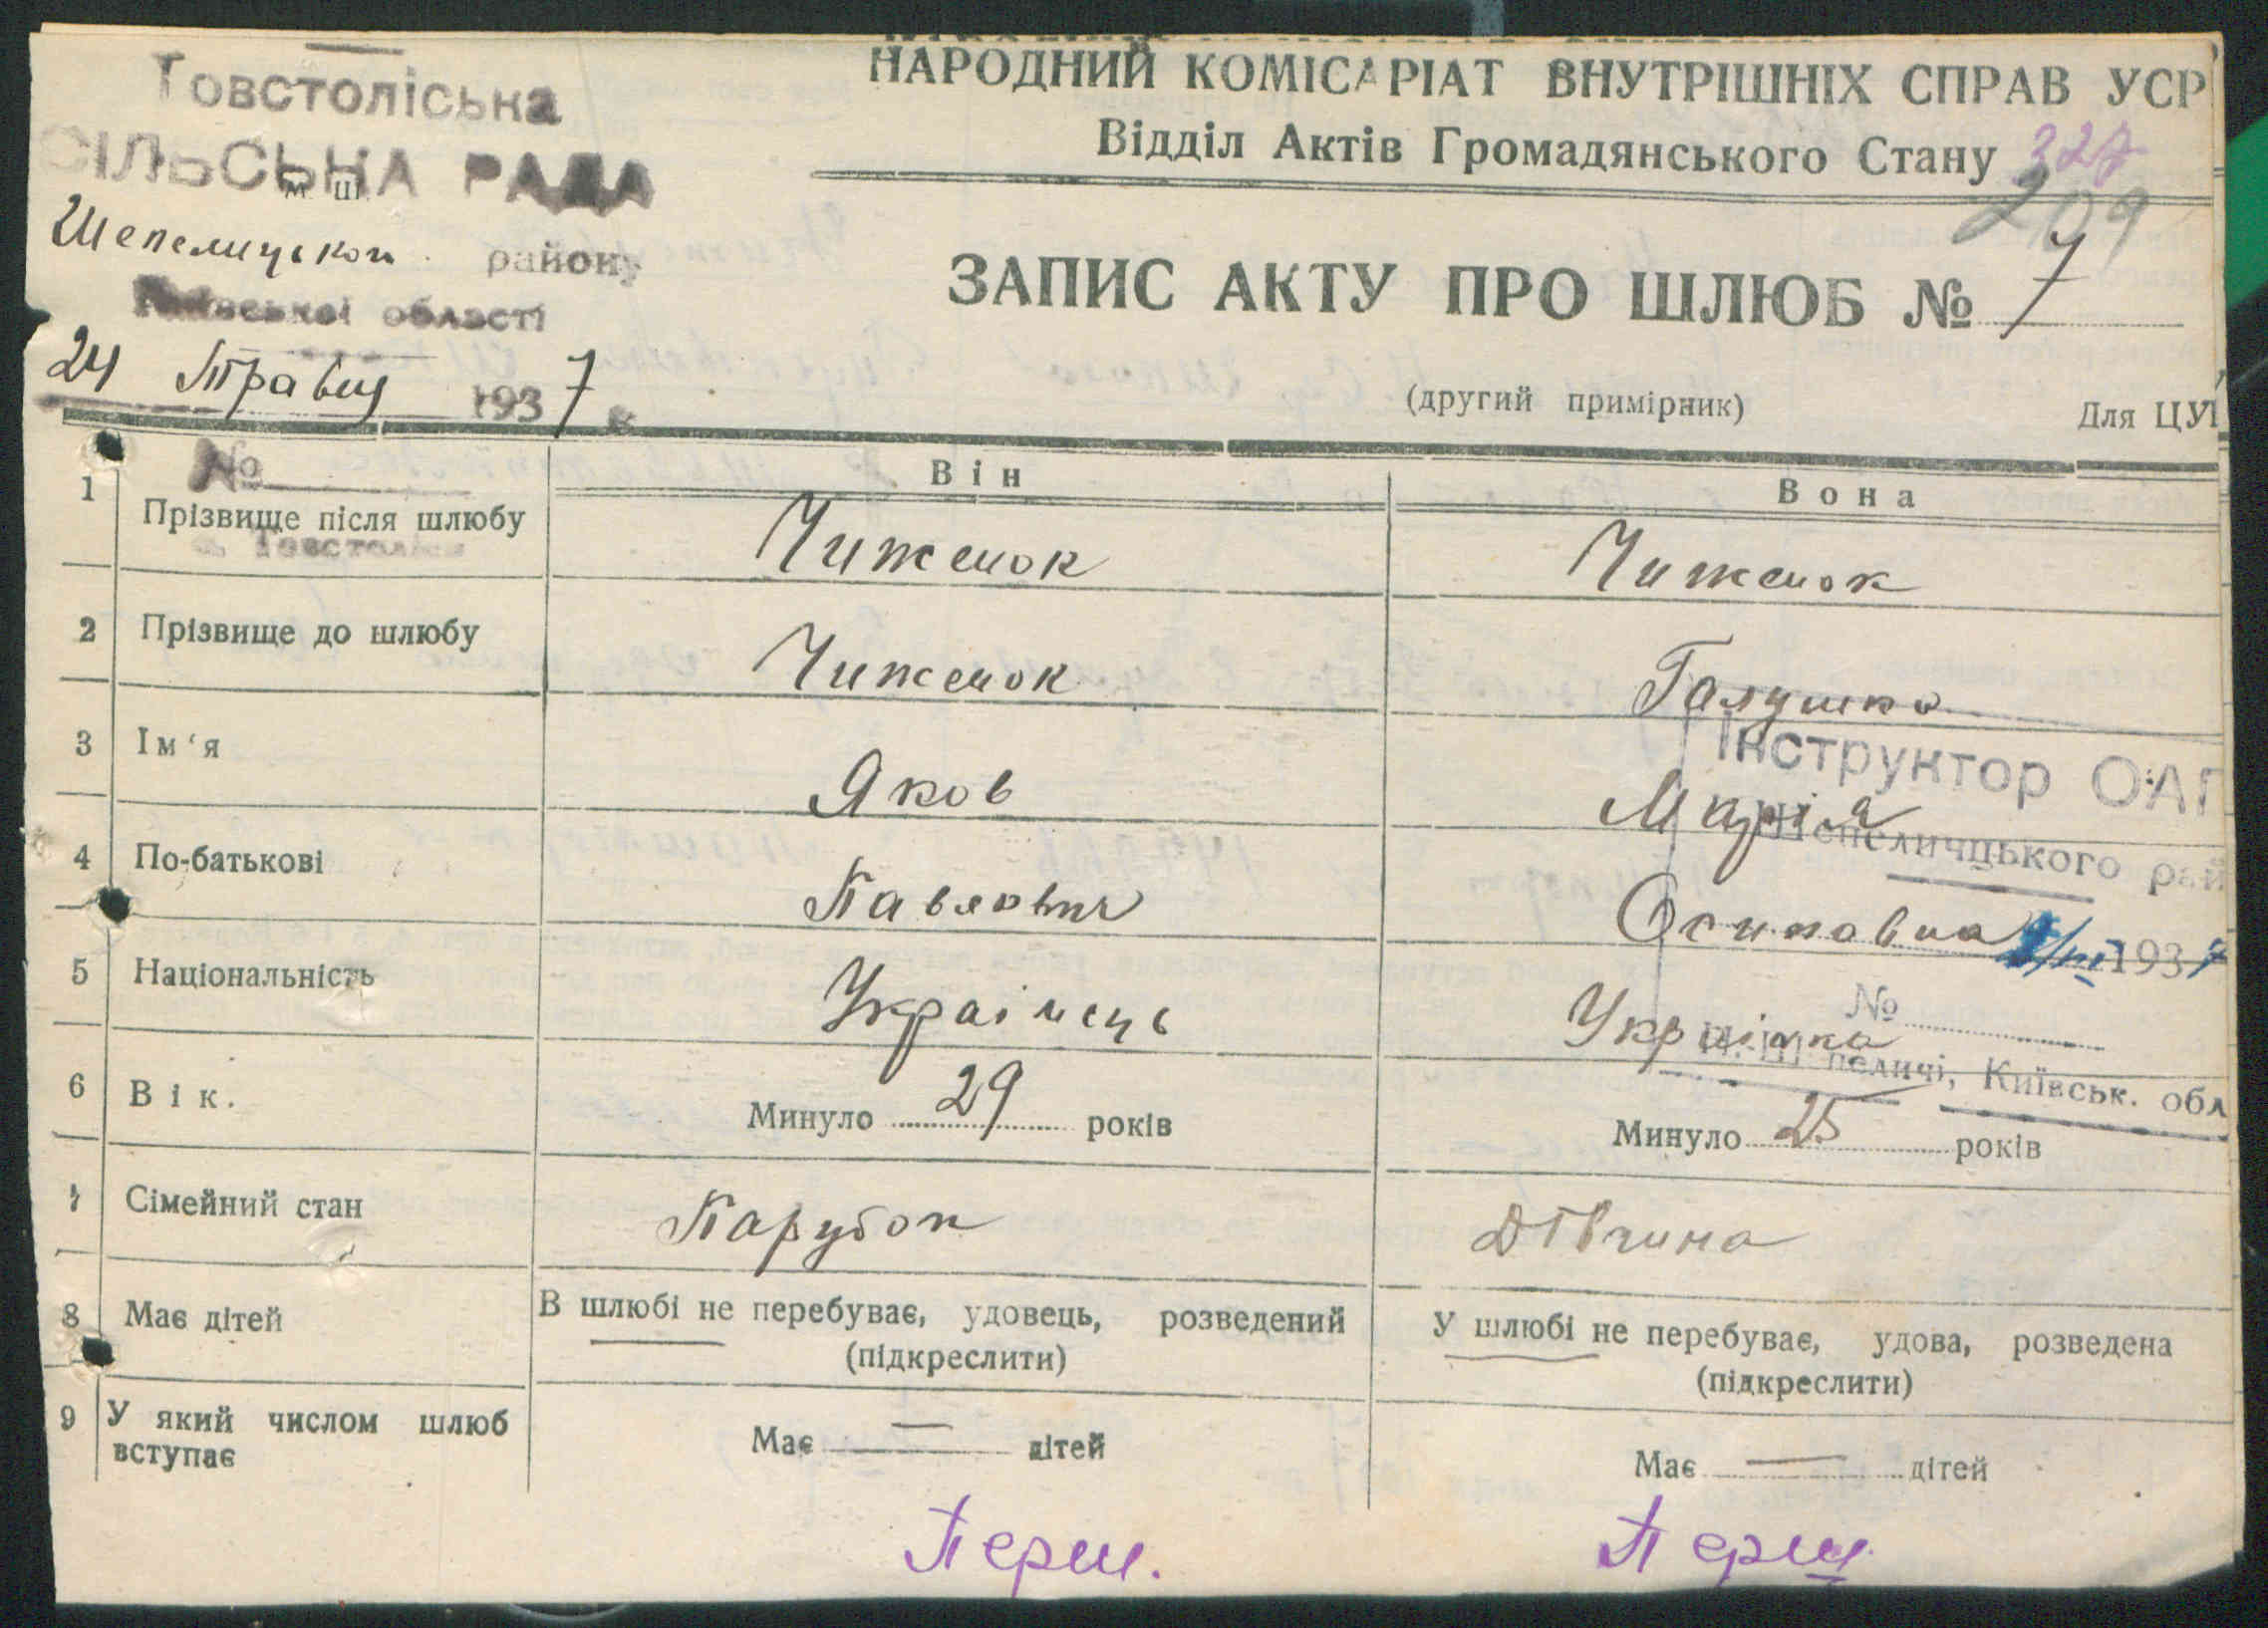 Товстоліська
СІЛЬСЬКА РАДА
Шепелицької району
Київської області
24 Травня 1937
№
НАРОДНИЙ КОМІСАРІАТ ВНУТРІШНІХ СПРАВ УСР
Відділ Актів Громадянського Стану
209
ЗАПИС АКТУ ПРО ШЛЮБ № 7
(другий примірник)
Для ЦУ
Він
Вона
1 Прізвище після шлюбу Чиженок Чиженок
2 Прізвище до шлюбу Чиженок Галушко
3 Ім'я Яков Марія
4 По-батькові Павлович Осиповна
5 Національність Українець Українка
6 Вік. Минуло 29 років Минуло 25 років
7 Сімейний стан Парубок Дівчина
В шлюбі не перебуває, удовець, розведений
(підкреслити)
У шлюбі не перебуває, удова, розведена
(підкреслити)
8 Має дітей Має — дітей Має — дітей
9 У який числом шлюб
вступає
Перш. Перш
Інструктор ОАГ
Шепеличцького рай
1937
№
Шепеличі, Київськ. обл